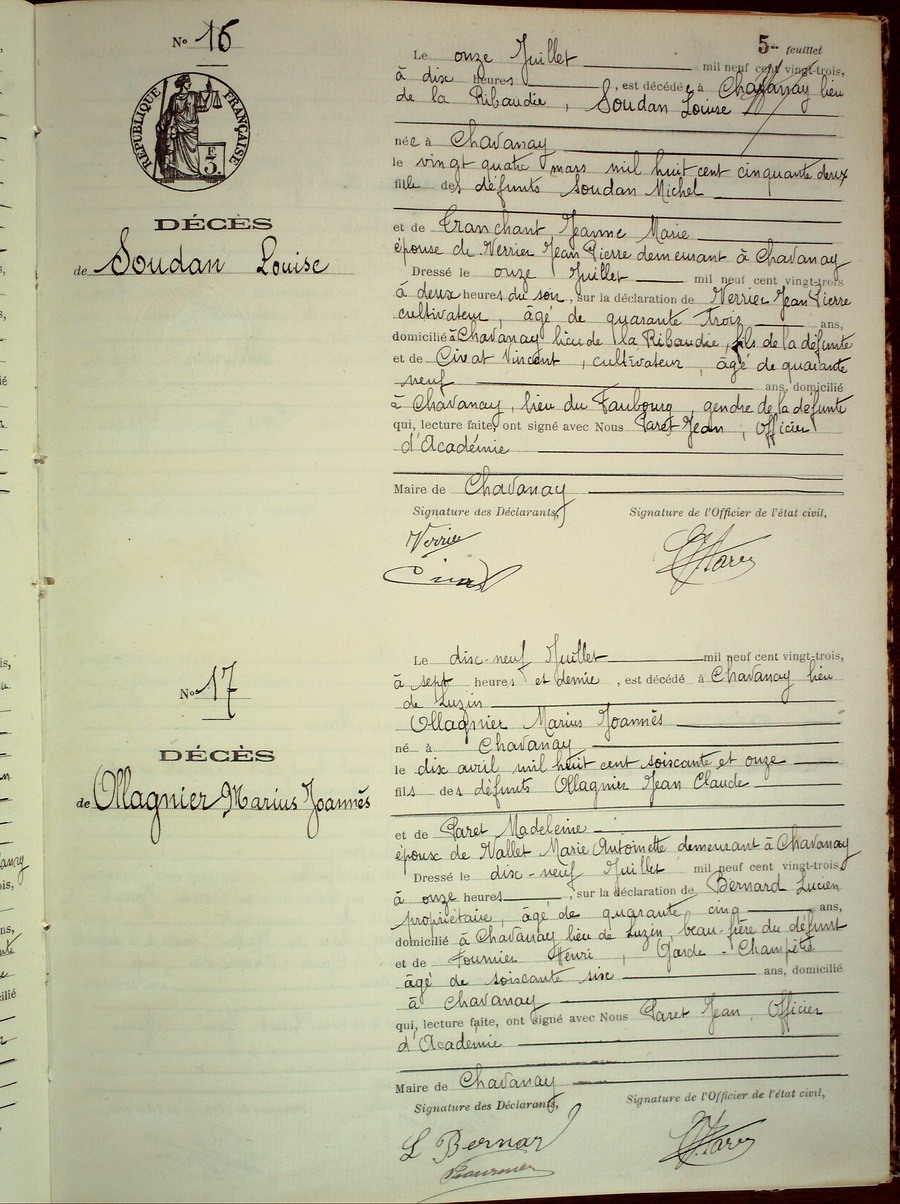 5- feuillet
No 16
RÉPUBLIQUE FRANÇAISE
E
3.
DÉCÈS
de Soudan Louise
Le onze Juillet mil neuf cent vingt-trois,
à dix heures, est décédée à Chavanay lieu
de la Ribaudie, Soudan Louise
née à Chavanay
le vingt quatre mars mil huit cent cinquante deux
fille des défunts Soudan Michel
et de Tranchant Jeanne Marie
épouse de Verrier Jean Pierre demeurant à Chavanay
Dressé le onze Juillet mil neuf cent vingt-trois
à deux heures du soir, sur la déclaration de Verrier Jean Pierre
cultivateur, âgé de quarante trois ans,
domicilié à Chavanay lieu de la Ribaudie, fils de la défunte
et de Civat Vincent, cultivateur, âgé de quarante
neuf ans, domicilié
à Chavanay, lieu du Faubourg, gendre de la défunte
qui, lecture faite, ont signé avec Nous Paret Jean, Officier
d'Académie
Maire de Chavanay
Signature des Déclarants,
Signature de l'Officier de l'état civil,
Verrier
Civat
No 17
DÉCÈS
de Ollagnier Marius Joannès
Le dix-neuf Juillet mil neuf cent vingt-trois,
à sept heures et demie, est décédé à Chavanay lieu
de Luzin
Ollagnier Marius Joannès
né à Chavanay
le dix avril mil huit cent soixante et onze
fils des défunts Ollagnier Jean Claude
et de Paret Madeleine
époux de Vallet Marie Antoinette demeurant à Chavanay
Dressé le dix-neuf Juillet mil neuf cent vingt-trois,
à onze heures, sur la déclaration de Bernard Lucien
propriétaire, âgé de quarante cinq ans,
domicilié à Chavanay lieu de Luzin, beau-frère du défunt
et de Fournier Henri, Garde-Champêtre
âgé de soixante six ans, domicilié
à Chavanay
qui, lecture faite, ont signé avec Nous Paret Jean, Officier
d'Académie
Maire de Chavanay
Signature des Déclarants,
Signature de l'Officier de l'état civil,
L Bernard
Fournier